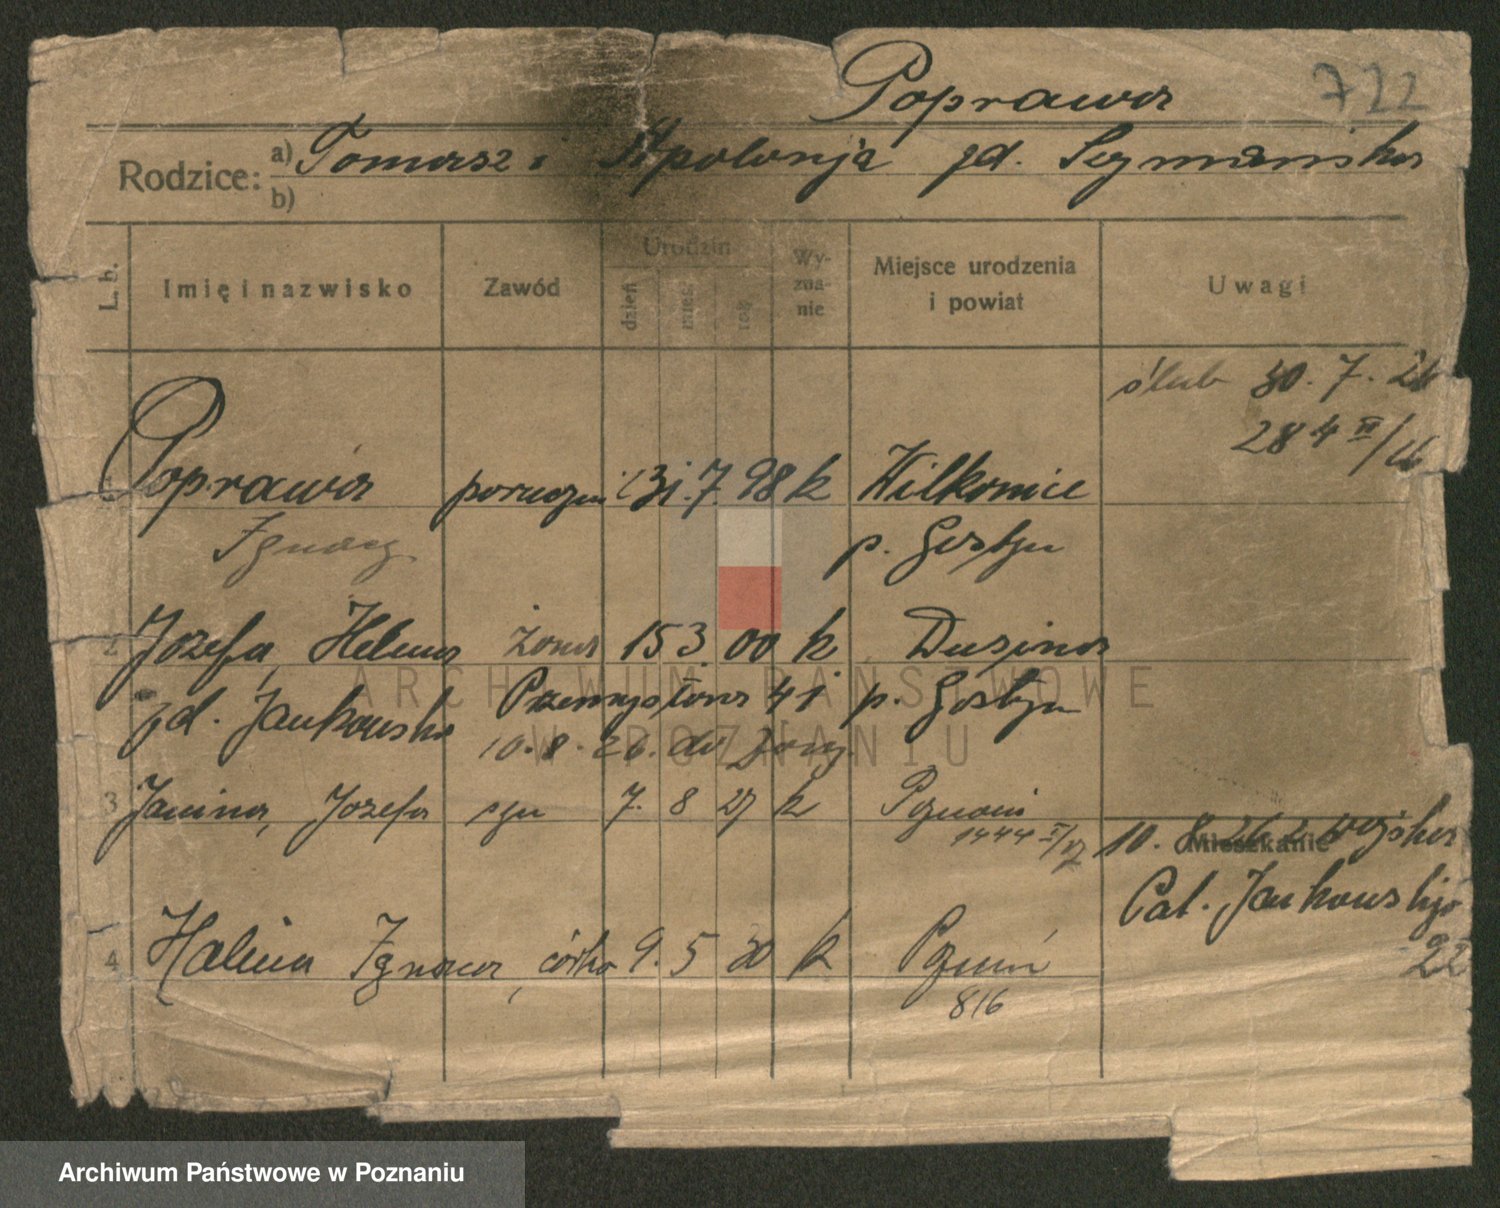 Poprawa 722
Rodzice: a) Tomasz i Apolonja zd. Szymańska
b)
L. b. Imię i nazwisko Zawód Urodzin dzień mies. rok Wyznanie Miejsce urodzenia i powiat Uwagi
ślub 30. 7. 26
284 /26
1 Poprawa 31. 7. 98 k Wilkonice
Ignacy p. Gostyn
2 Józefa, Helena żona 15 3 00 k Dusina
zd. Jankowska Przemysłowa 41 p. Gostyn
10. 8. 26. do żony
3 Janina, Józefa 7. 8 27 k Poznań
1444
10. 8. 26 z wojska
Mieszkanie
Jankowskiego
22
4 Halina Ignaca, córka 9. 5 30 k Poznań
816
ARCHIWUM PAŃSTWOWE
W POZNANIU
Archiwum Państwowe w Poznaniu